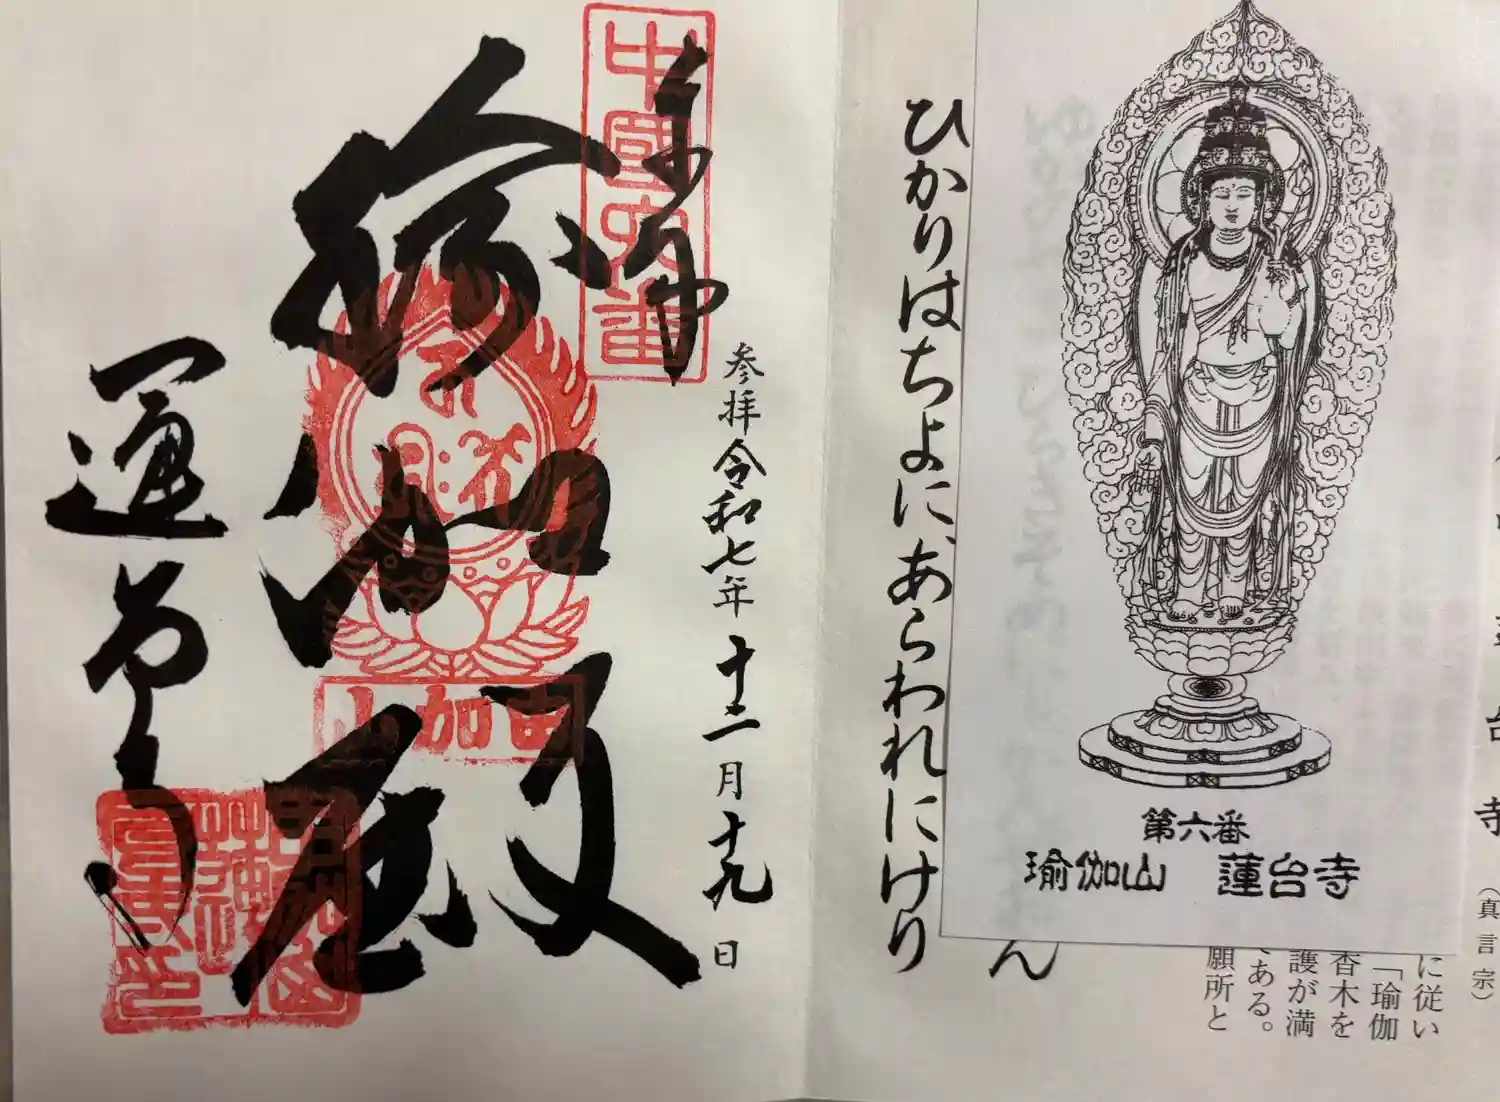 台寺
（真言宗）
に従い
「瑜伽
香木を
護が満
ある。
願所と
第六番
瑜伽山　蓮台寺
ん
ひかりはちよに、あらわれにけり
参拝令和七年十二月十九日
奉納
中國六番
瑜伽殿
由加山
蓮台寺